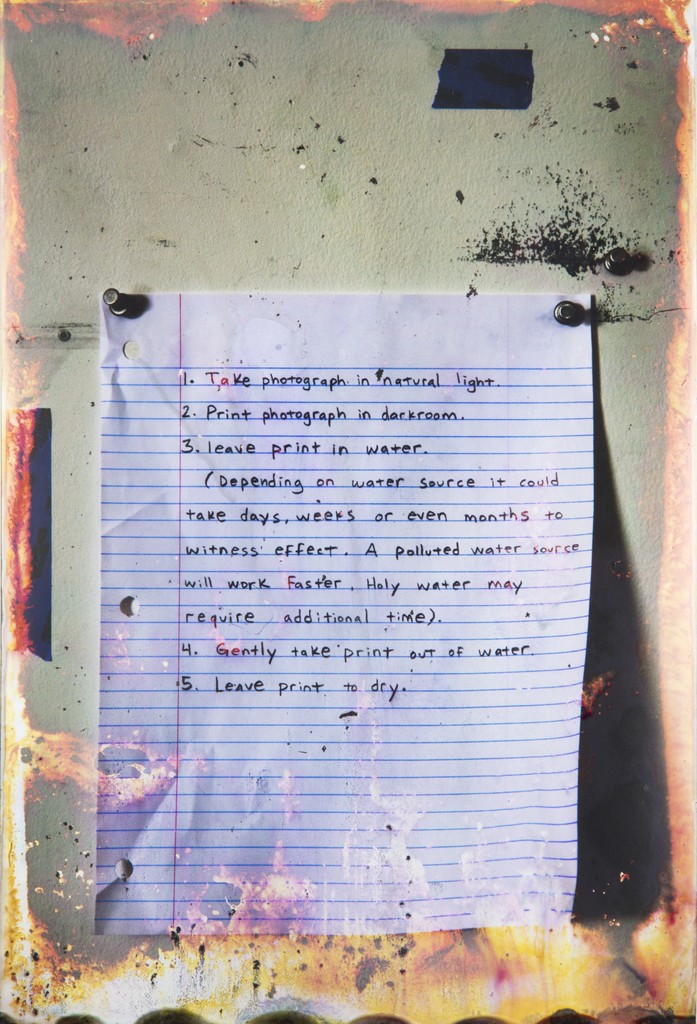 1. Take photograph in natural light.
2. Print photograph in darkroom.
3. leave print in water.
(Depending on water source it could
take days, weeks or even months to
witness effect. A polluted water source
will work faster. Holy water may
require additional time).
4. Gently take print out of water.
5. Leave print to dry.